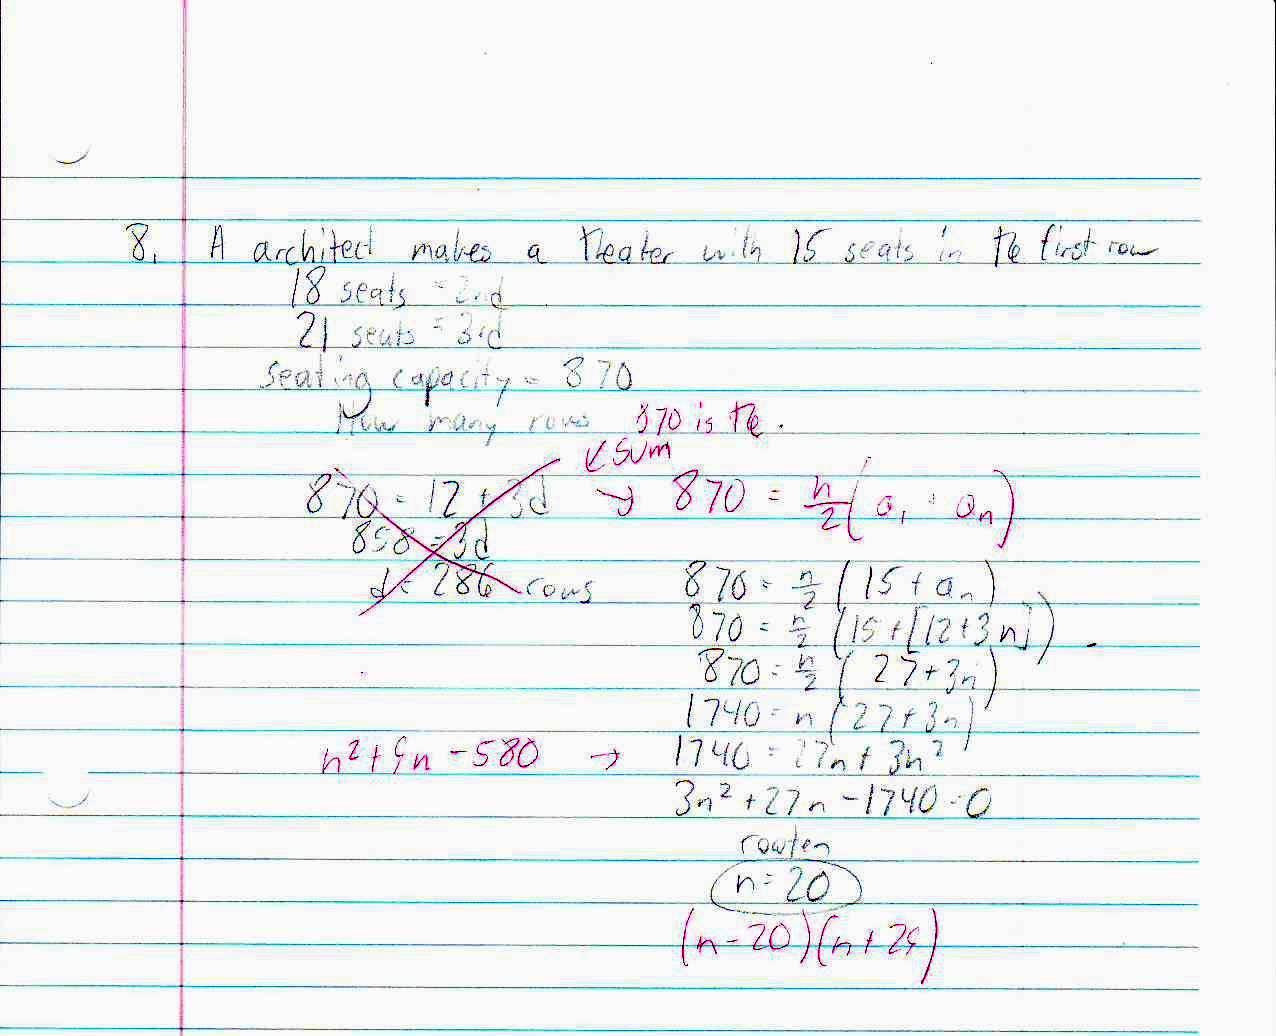 8. A architect makes a theater with 15 seats in the first row
18 seats = 2nd
21 seats = 3rd
seating capacity = 870
How many rows 870 is the.
↙ sum
870 = 12 + 3d → 870 = n/2 (a₁ + aₙ)
858 = 3d
d = 286 rows
870 = n/2 (15 + aₙ)
870 = n/2 (15 + [12 + 3n])
870 = n/2 (27 + 3n)
1740 = n (27 + 3n)
n² + 9n - 580 → 1740 = 27n + 3n²
3n² + 27n - 1740 = 0
n = 20
(n - 20)(n + 29)